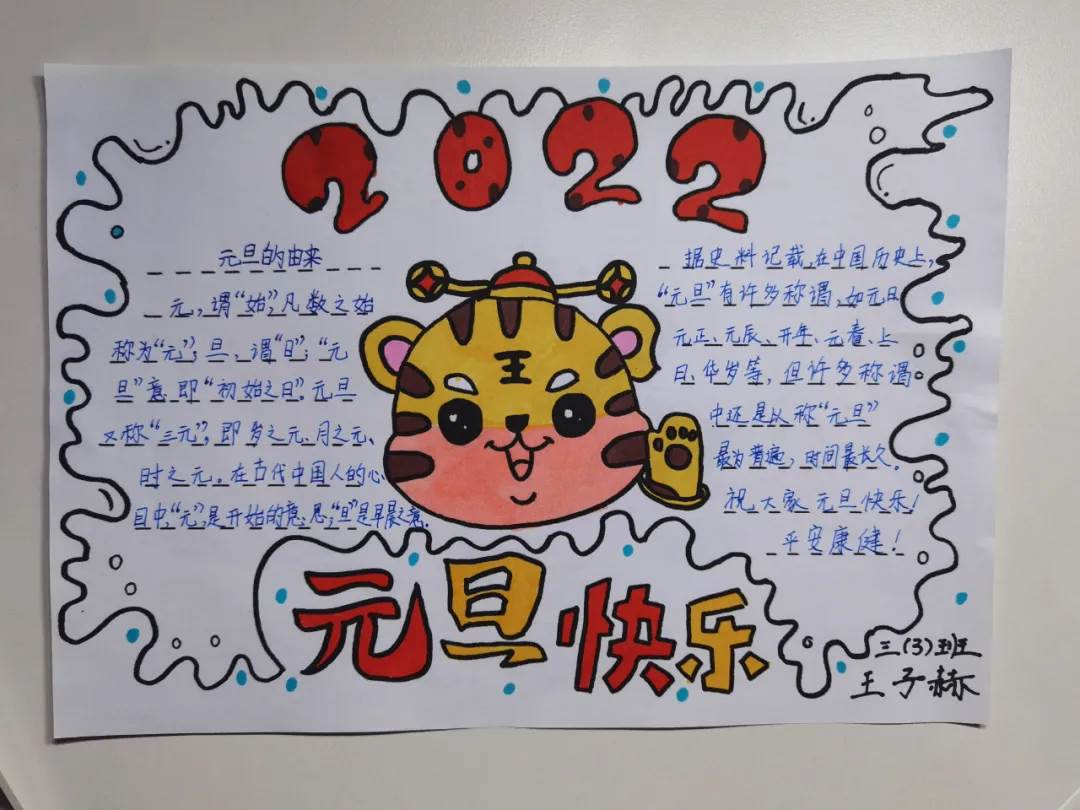 2022
元旦的由来
元,谓“始”,凡数之始
称为“元”;旦,谓“日”;“元
旦”意即“初始之日”。元旦
又称“三元”,即岁之元、月之元、
时之元。在古代中国人的心
目中,“元”,是开始的意思,“旦”是早晨之意.
据史料记载,在中国历史上,
“元旦”有许多称谓,如元日
元正、元辰、开年、元春、上
日、华岁等,但许多称谓
中还是以称“元旦”
最为普遍,时间最长久。
祝大家元旦快乐!
平安康健!
王
元旦快乐
三(3)班
王子赫